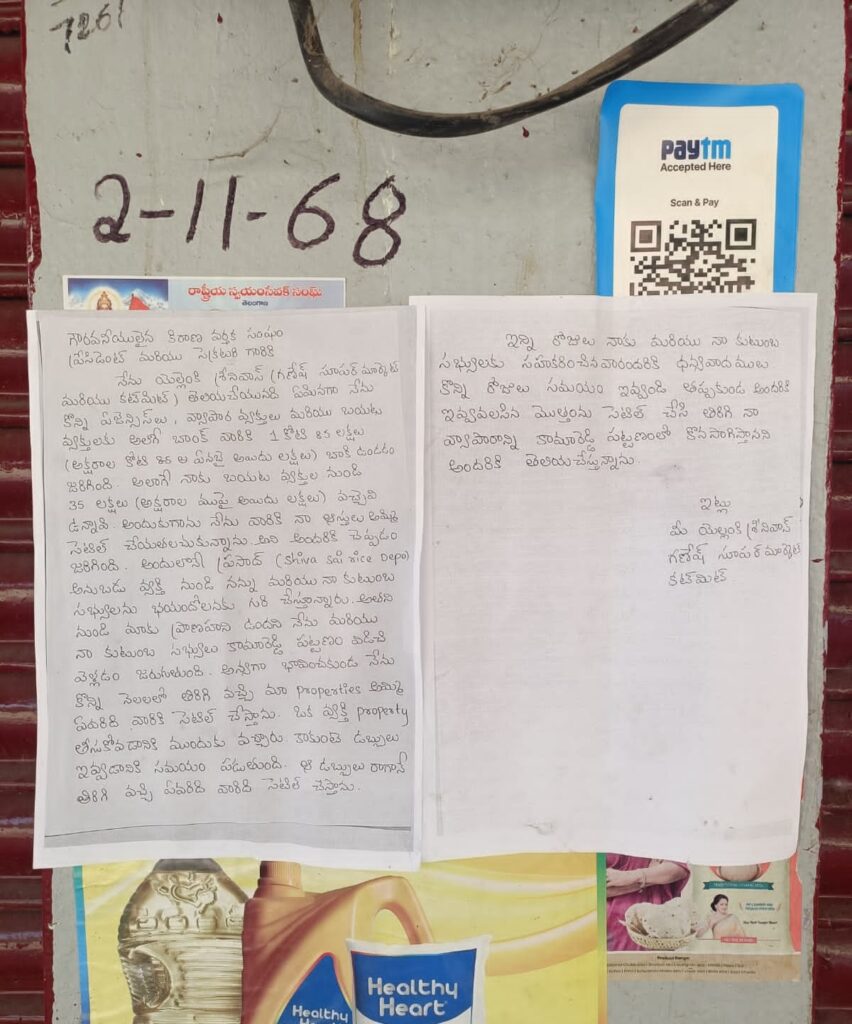 7261
2-11-68
paytm
Accepted Here
Scan & Pay
రాష్ట్రీయ స్వయంసేవక్ సంఘ్
తెలంగాణ
గౌరవనీయులైన కిరాణ వర్తక సంఘం
ప్రేసిడెంట్ మరియు సెక్రటరి గారికి
నేను యెల్లంకి శ్రీనివాస్ (గణేష్ సూపర్ మార్కెట్
మరియు కట్‌మిట్) తెలియచేయునది ఏమనగా నేను
కొన్ని ఏజెన్సిస్‌లు, వ్యాపార వ్యక్తులు మరియు బయట
వ్యక్తులకు అలాగే బాంక్ వారికి 1 కోటి 85 లక్షలు
(అక్షరాల కోటి ఏనబై అయిదు లక్షలు) బాకీ ఉండడం
జరిగింది. అలాగే నాకు బయట వ్యక్తుల నుండి
35 లక్షలు (అక్షరాల ముప్పై అయిదు లక్షలు) వచ్చేవి
ఉన్నావి. అందుకుగాను నేను వారికి నా ఆస్తులు అమ్మి
సెటిల్ చేయతలచుకున్నాను. అని అందరికి చెప్పడం
జరిగింది. అందులానే ప్రసాద్ (Shiva sai rice Depo)
అనుబడు వ్యక్తి నుండి నన్ను మరియు నా కుటుంబ
సభ్యులను భయందోలనకు గురి చేస్తూన్నారు. అతని
నుండి మాకు ప్రాణహాని ఉందని నేను మరియు
నా కుటుంబ సభ్యులు కామారెడ్డి పట్టణం విడిచి
వెళ్లడం జరుగుతుంది. అన్యగా భావించకుండ నేను
కొన్ని నెలలలో తిరిగి వచ్చి మా properties అమ్మి
ఏవరిది వారికి సెటిల్ చేస్తాను. ఒక వ్యక్తి property
తీసుకోవడానికి ముందుకు వచ్చారు కాకుంటె డబ్బులు
ఇవ్వడానికి సమయం పడుతుంది. ఆ డబ్బులు రాగానే
తిరిగి వచ్చి ఏవరిది వారిది సెటిల్ చేస్తాను.
ఇన్ని రోజులు నాకు మరియు నా కుటుంబ
సభ్యులకు సహకరించిన వారందరికి ధన్యవాదములు
కొన్ని రోజులు సమయం ఇవ్వండి తప్పకుండ అందరికి
ఇవ్వవలసిన మొత్తంను సెటిల్ చేసి తిరిగి నా
వ్యాపారాన్ని కామారెడ్డి పట్టణంలో కొనసాగిస్తానని
అందరికి తెలియచేస్తున్నాను.
ఇట్లు
మీ యెల్లంకి శ్రీనివాస్
గణేష్ సూపర్ మార్కెట్
కట్‌మిట్.
Healthy
Heart
Healthy